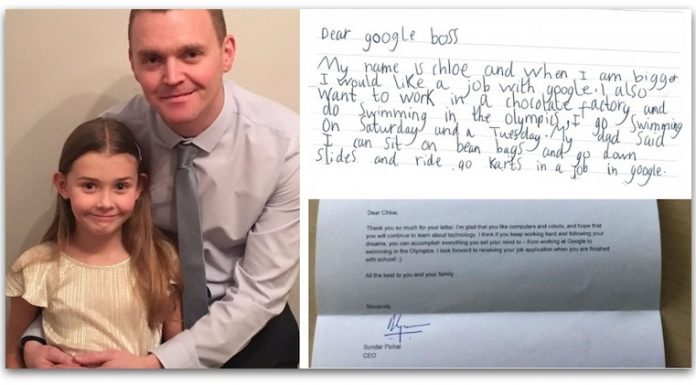 Dear google boss
My name is chloe and when I am bigger
I would like a job with google. I also
want to work in a chocolate factory and
do swimming in the olympics, I go swimming
on Saturday and a Tuesday. My dad said
I can sit on bean bags and go down
slides and ride go karts in a job in google.
Dear Chloe,
Thank you so much for your letter. I'm glad that you like computers and robots, and hope that
you will continue to learn about technology. I think if you keep working hard and following your
dreams, you can accomplish everything you set your mind to - from working at Google to
swimming in the Olympics. I look forward to receiving your job application when you are finished
with school! :)
All the best to you and your family.
Sincerely,
Sundar Pichai
CEO